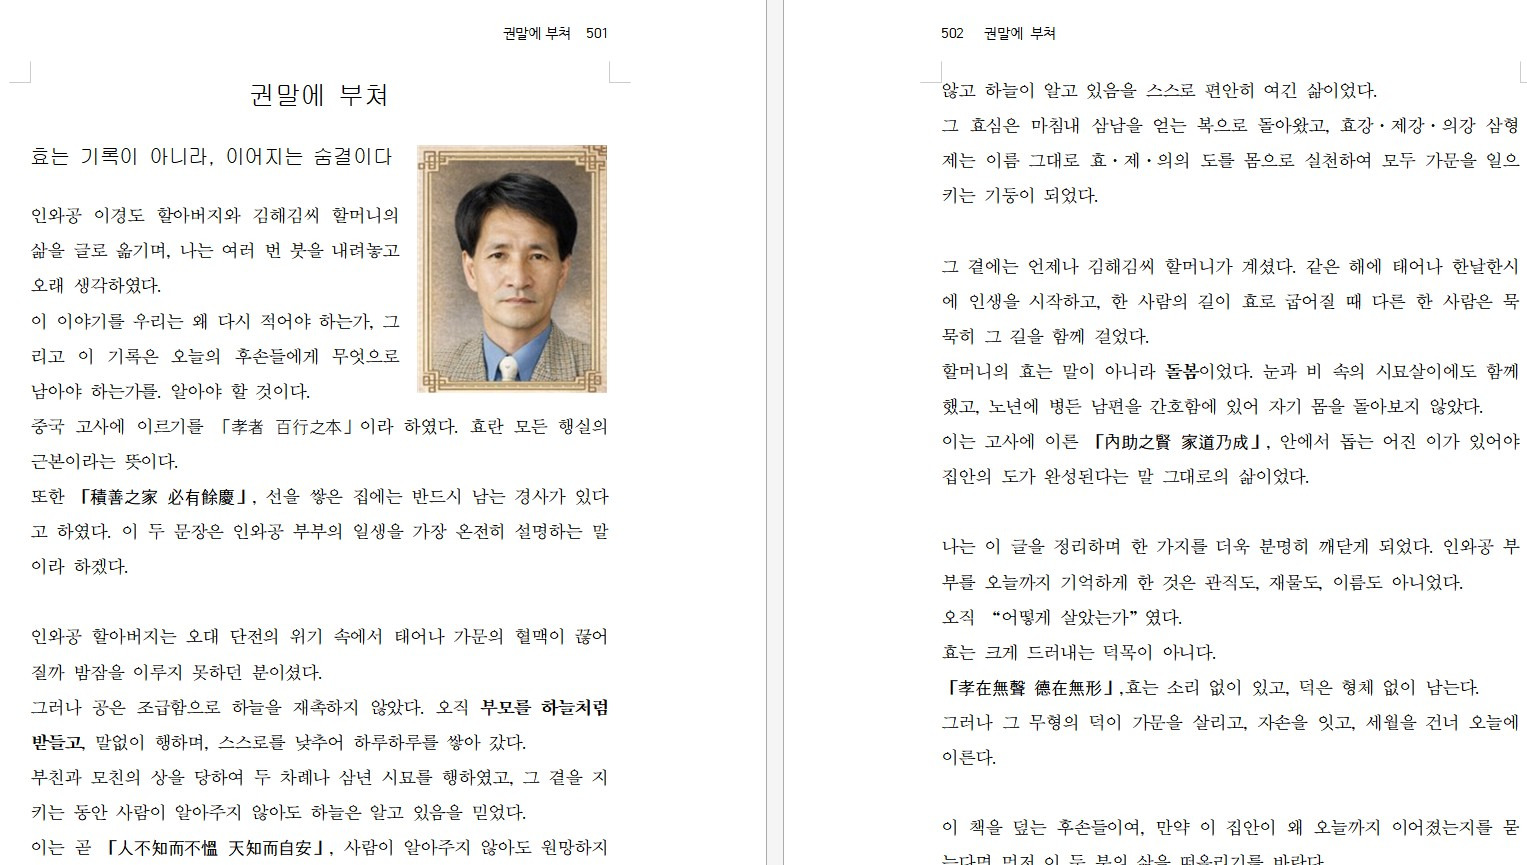 권말에 부쳐 501
권말에 부쳐
효는 기록이 아니라, 이어지는 숨결이다
인와공 이경도 할아버지와 김해김씨 할머니의
삶을 글로 옮기며, 나는 여러 번 붓을 내려놓고
오래 생각하였다.
이 이야기를 우리는 왜 다시 적어야 하는가, 그
리고 이 기록은 오늘의 후손들에게 무엇으로
남아야 하는가를. 알아야 할 것이다.
중국 고사에 이르기를 「孝者 百行之本」이라 하였다. 효란 모든 행실의
근본이라는 뜻이다.
또한 「積善之家 必有餘慶」, 선을 쌓은 집에는 반드시 남는 경사가 있다
고 하였다. 이 두 문장은 인와공 부부의 일생을 가장 온전히 설명하는 말
이라 하겠다.
인와공 할아버지는 오대 단전의 위기 속에서 태어나 가문의 혈맥이 끊어
질까 밤잠을 이루지 못하던 분이셨다.
그러나 공은 조급함으로 하늘을 재촉하지 않았다. 오직 부모를 하늘처럼
받들고, 말없이 행하며, 스스로를 낮추어 하루하루를 쌓아 갔다.
부친과 모친의 상을 당하여 두 차례나 삼년 시묘를 행하였고, 그 곁을 지
키는 동안 사람이 알아주지 않아도 하늘은 알고 있음을 믿었다.
이는 곧 「人不知而不慍 天知而自安」, 사람이 알아주지 않아도 원망하지
502 권말에 부쳐
않고 하늘이 알고 있음을 스스로 편안히 여긴 삶이었다.
그 효심은 마침내 삼남을 얻는 복으로 돌아왔고, 효강·제강·의강 삼형
제는 이름 그대로 효·제·의의 도를 몸으로 실천하여 모두 가문을 일으
키는 기둥이 되었다.
그 곁에는 언제나 김해김씨 할머니가 계셨다. 같은 해에 태어나 한날한시
에 인생을 시작하고, 한 사람의 길이 효로 굽어질 때 다른 한 사람은 묵
묵히 그 길을 함께 걸었다.
할머니의 효는 말이 아니라 돌봄이었다. 눈과 비 속의 시묘살이에도 함께
했고, 노년에 병든 남편을 간호함에 있어 자기 몸을 돌아보지 않았다.
이는 고사에 이른 「內助之賢 家道乃成」, 안에서 돕는 어진 이가 있어야
집안의 도가 완성된다는 말 그대로의 삶이었다.
나는 이 글을 정리하며 한 가지를 더욱 분명히 깨닫게 되었다. 인와공 부
부를 오늘까지 기억하게 한 것은 관직도, 재물도, 이름도 아니었다.
오직 “어떻게 살았는가”였다.
효는 크게 드러내는 덕목이 아니다.
「孝在無聲 德在無形」,효는 소리 없이 있고, 덕은 형체 없이 남는다.
그러나 그 무형의 덕이 가문을 살리고, 자손을 잇고, 세월을 건너 오늘에
이른다.
이 책을 덮는 후손들이여, 만약 이 집안이 왜 오늘까지 이어졌는지를 묻
는다면 먼저 이 두 분의 삶을 떠올리기를 바란다.